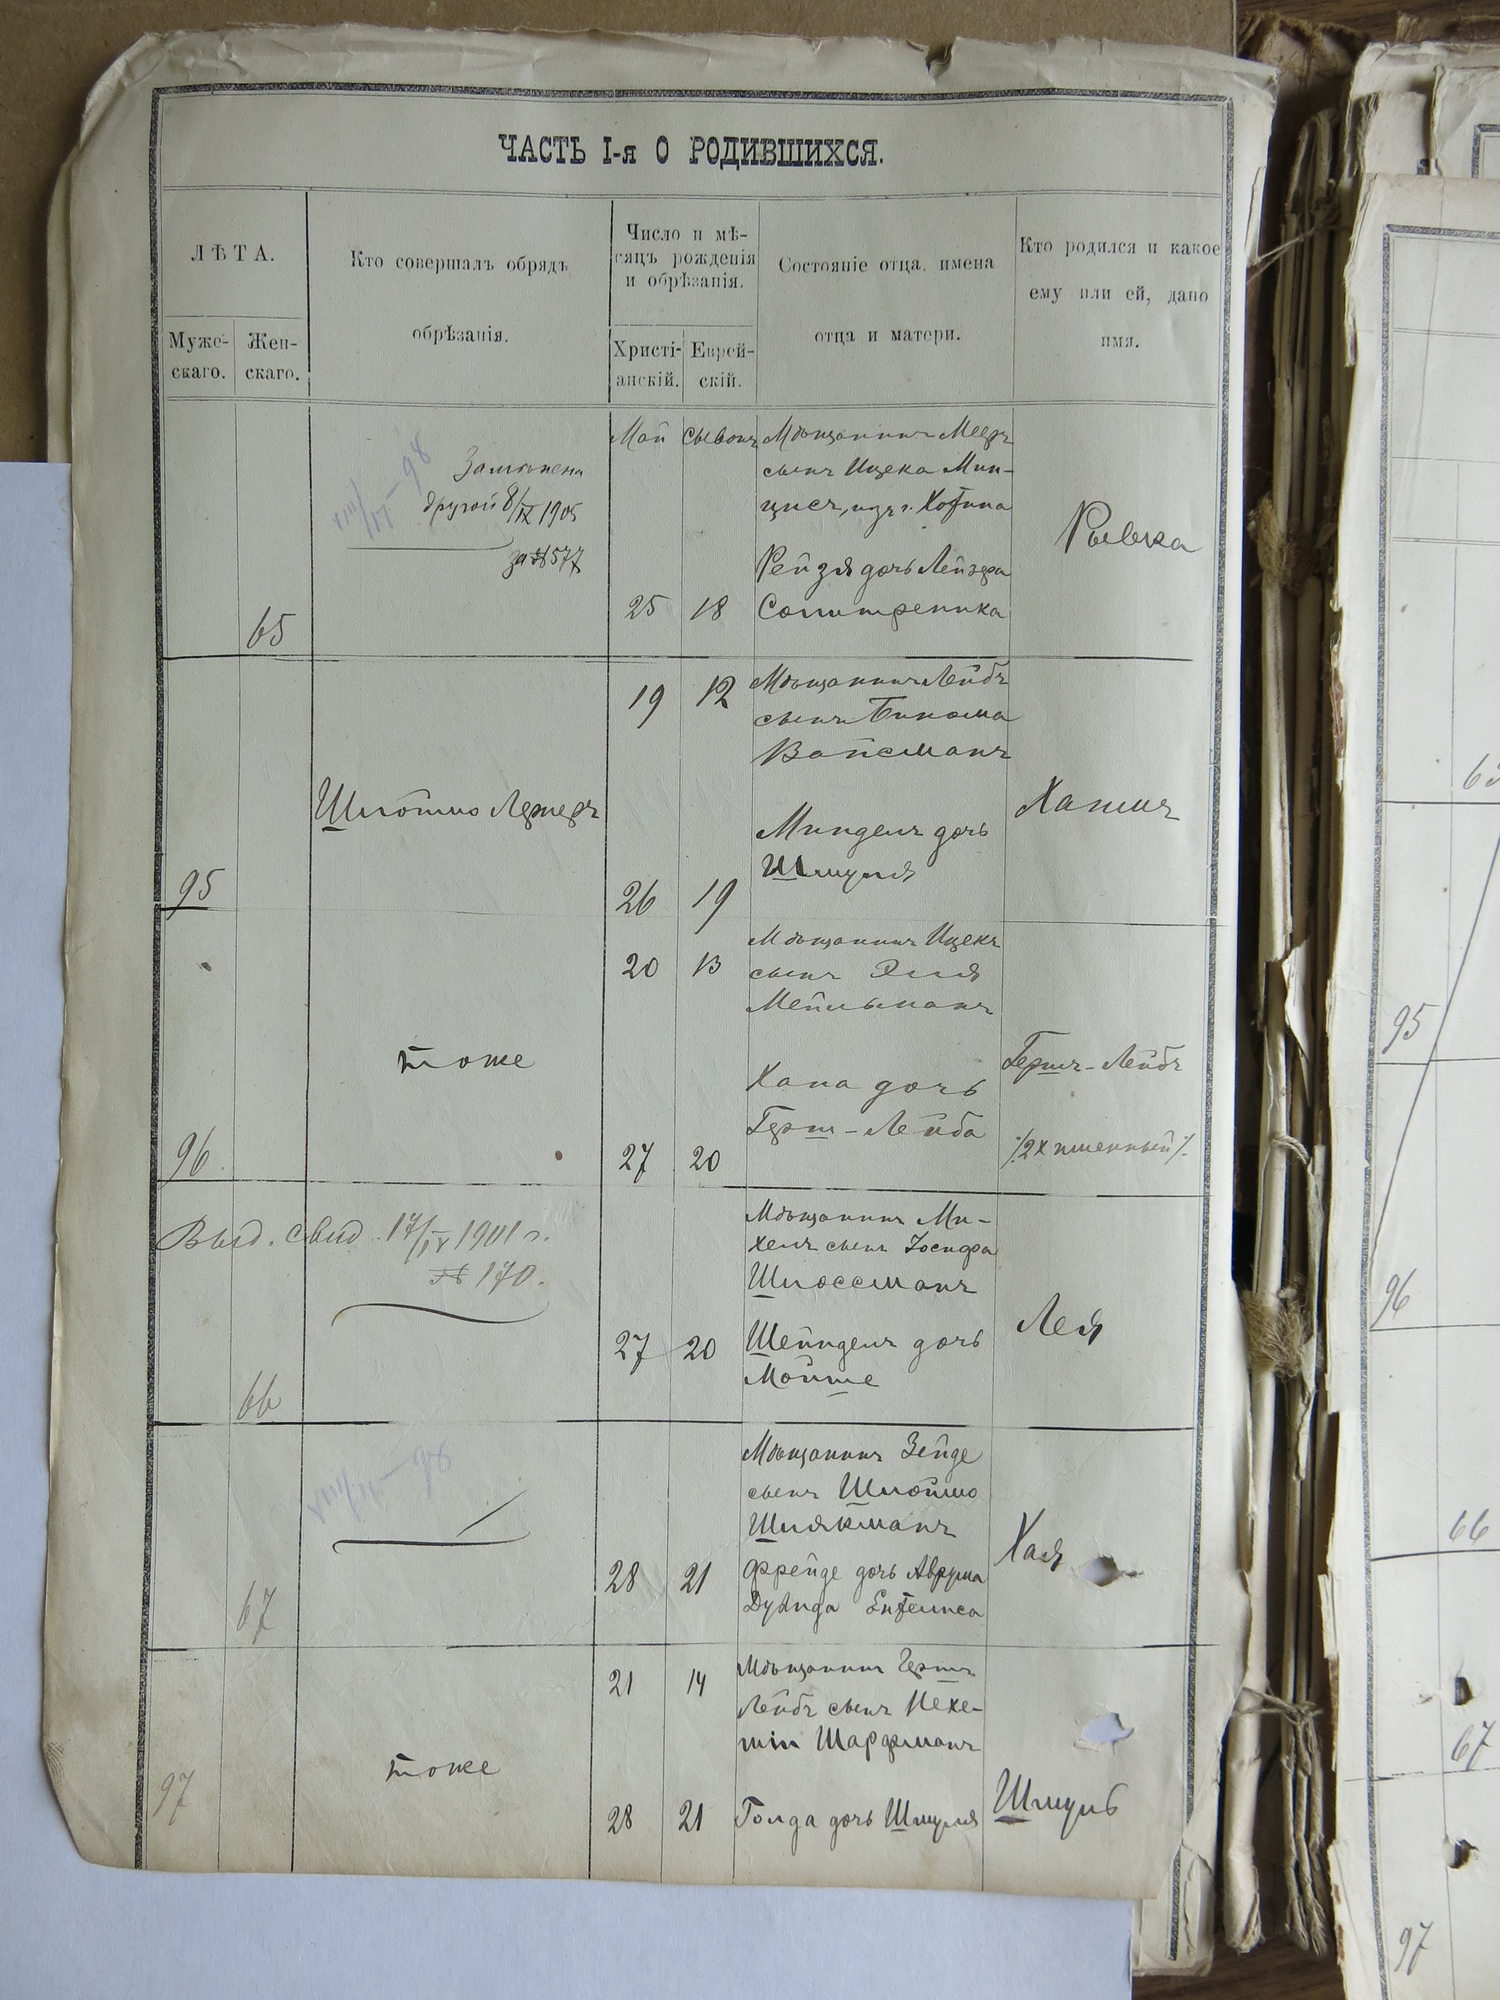 ЧАСТЬ I-я О РОДИВШИХСЯ.
ЛѢТА.
Муже-
скаго.
Жен-
скаго.
Кто совершалъ обрядъ
обрѣзанія.
Число и мѣ-
сяцъ рожденія
и обрѣзанія.
Христі-
анскій.
Еврей-
скій.
Состояніе отца, имена
отца и матери.
Кто родился и какое
ему или ей, дано
имя.
65
Замѣнена
другой 8/IX 1905
за № 577
Май
Сывонъ
25
18
Мѣщанинъ Мееръ
сынъ Ицека Мин-
цисъ, изъ г. Хотина
Рейзя дочь Лейзера
Солитреника
Рывка
95
Шлойшо Лернеръ
19
12
26
19
Мѣщанинъ Лейбъ
сынъ Бинома
Вайсманъ
Миндель дочь
Шмуля
Хаимъ
96
тоже
20
13
27
20
Мѣщанинъ Ицекъ
сынъ Эля
Мейльманъ
Хана дочь
Герш-Лейба
Гершъ-Лейбъ
/2х именный/.
66
Выд. свид. 17/IV 1901 г.
№ 170.
27
20
Мѣщанинъ Ми-
хель сынъ Іосифа
Шлоссманъ
Шейндель дочь
Мойше
Лея
67
28
21
Мѣщанинъ Зейде
сынъ Шлойшо
Шлякманъ
Фрейде дочь Аврума
Дувида
Хая
97
тоже
21
14
28
21
Мѣщанинъ Гершъ
Лейбъ сынъ Нехе-
міи Шарфманъ
Голда дочь Шмуля
Шмуль
95
96
66
67
97